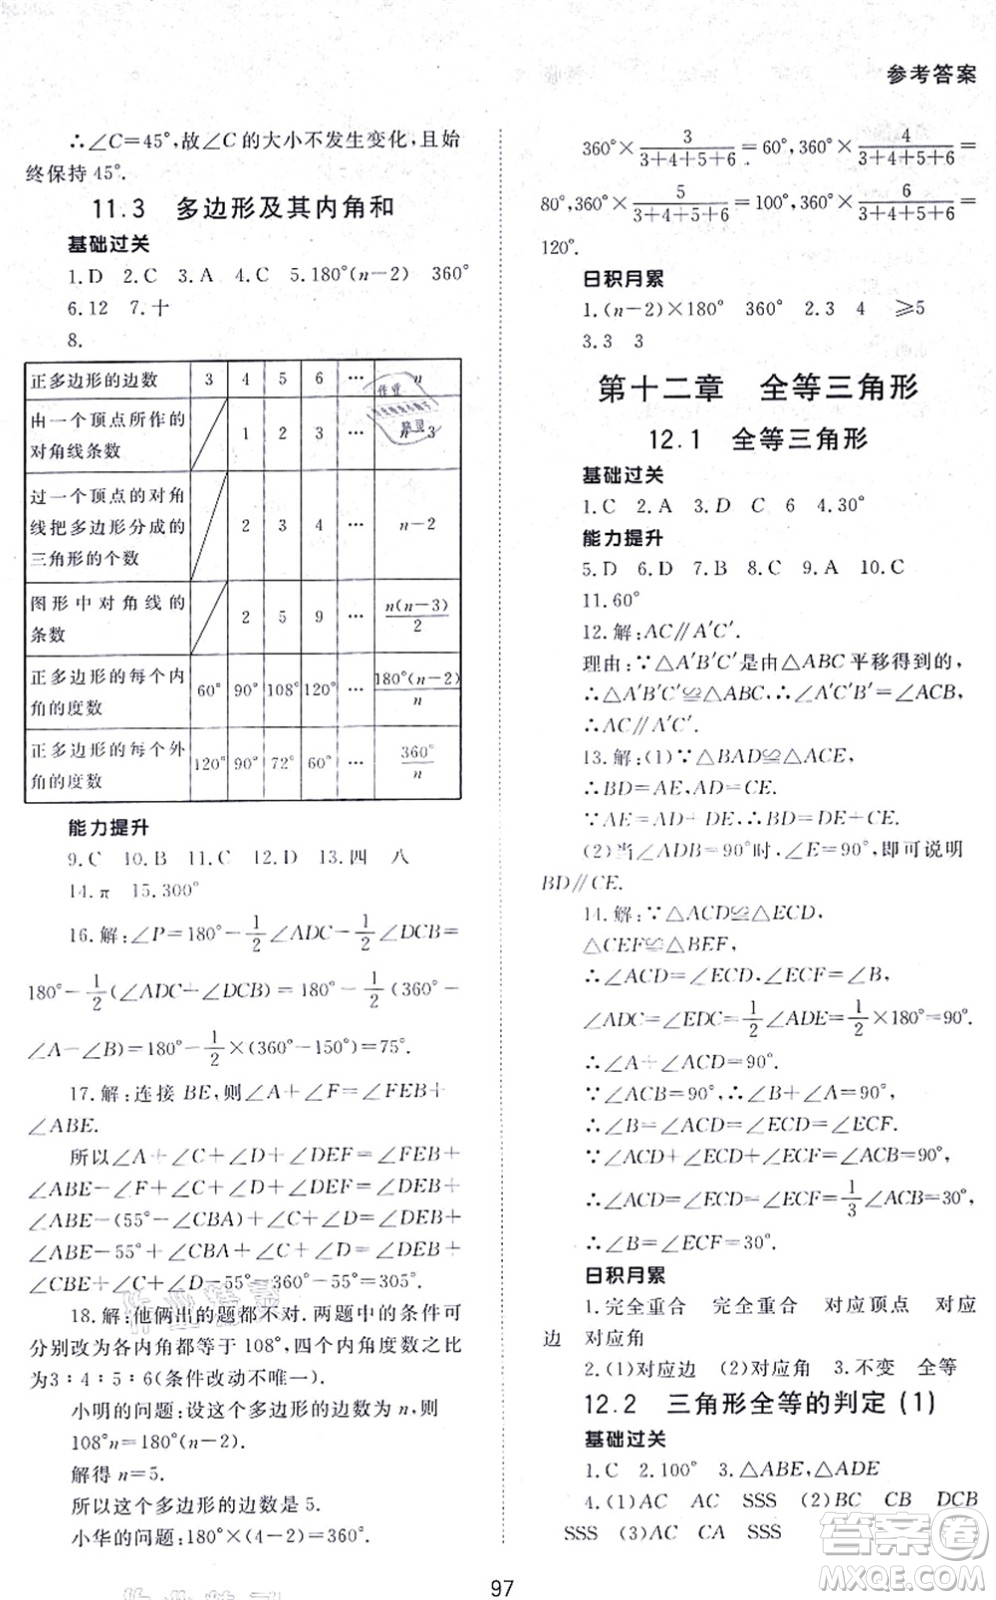 参考答案
∴∠C=45°,故∠C的大小不发生变化,且始
终保持45°.
11.3 多边形及其内角和
基础过关
1.D 2.C 3.A 4.C 5.180°(n-2) 360°
6.12 7.十
8.
正多边形的边数 3 4 5 6 … n
由一个顶点所作的对角线条数 1 2 3 … n-3
过一个顶点的对角线把多边形分成的三角形的个数 2 3 4 … n-2
图形中对角线的条数 2 5 9 … n(n-3)/2
正多边形的每个内角的度数 60° 90° 108° 120° … 180°(n-2)/n
正多边形的每个外角的度数 120° 90° 72° 60° … 360°/n
能力提升
9.C 10.B 11.C 12.D 13.四 八
14.π 15.300°
16.解:∠P=180°-1/2∠ADC-1/2∠DCB=
180°-1/2(∠ADC+∠DCB)=180°-1/2(360°-
∠A-∠B)=180°-1/2×(360°-150°)=75°.
17.解:连接BE,则∠A+∠F=∠FEB+
∠ABE.
所以∠A+∠C+∠D+∠DEF=∠FEB+
∠ABE-(55°-∠CBA)+∠C+∠D+∠DEF=
∠ABE-55°+∠CBA+∠C+∠D+∠DEB=
∠CBE+∠C+∠D-55°=360°-55°=305°.
18.解:他俩出的题都不对.两题中的条件可
分别改为各内角都等于108°,四个内角度数之比
为3∶4∶5∶6(条件改动不唯一).
小明的问题:设这个多边形的边数为n,则
108°n=180°(n-2).
解得n=5.
所以这个多边形的边数是5.
小华的问题:180°×(4-2)=360°.
360°×3/(3+4+5+6)=60°,360°×4/(3+4+5+6)=
80°,360°×5/(3+4+5+6)=100°,360°×6/(3+4+5+6)=
120°.
日积月累
1.(n-2)×180° 360° 2.3 4 ⩾5
3.3 3
第十二章 全等三角形
12.1 全等三角形
基础过关
1.C 2.A 3.D C 6 4.30°
能力提升
5.D 6.D 7.B 8.C 9.A 10.C
11.60°
12.解:AC∥A′C′.
理由:∵△A′B′C′是由△ABC平移得到的,
∴△A′B′C′≌△ABC,∴∠A′C′B′=∠ACB,
∴AC∥A′C′.
13.解:(1)∵△BAD≌△ACE,
∴BD=AE,AD=CE.
∵AE=AD+DE,∴BD=DE+CE.
(2)当∠ADB=90°时,∠E=90°,即可说明
BD∥CE.
14.解:∵△ACD≌△ECD,
△CEF≌△BEF,
∴∠ACD=∠ECD=∠ECF=∠B,
∠ADC=∠EDC=1/2∠ADE=1/2×180°=90°.
∴∠A+∠ACD=90°.
∵∠ACB=90°,∴∠B+∠A=90°,
∴∠ACD+∠ECD+∠ECF=∠ACB=90°,
∴∠ACD=∠ECD=∠ECF=1/3∠ACB=30°,
∴∠B=∠ECF=30°.
日积月累
1.完全重合 完全重合 对应顶点 对应
边 对应角
2.(1)对应边 (2)对应角 3.不变 全等
12.2 三角形全等的判定(1)
基础过关
1.C 2.100° 3.△ABE,△ADE
4.(1)AC AC SSS (2)BC CB DCB
SSS (3)AC CA SSS
97
答案圈
MXQE.COM